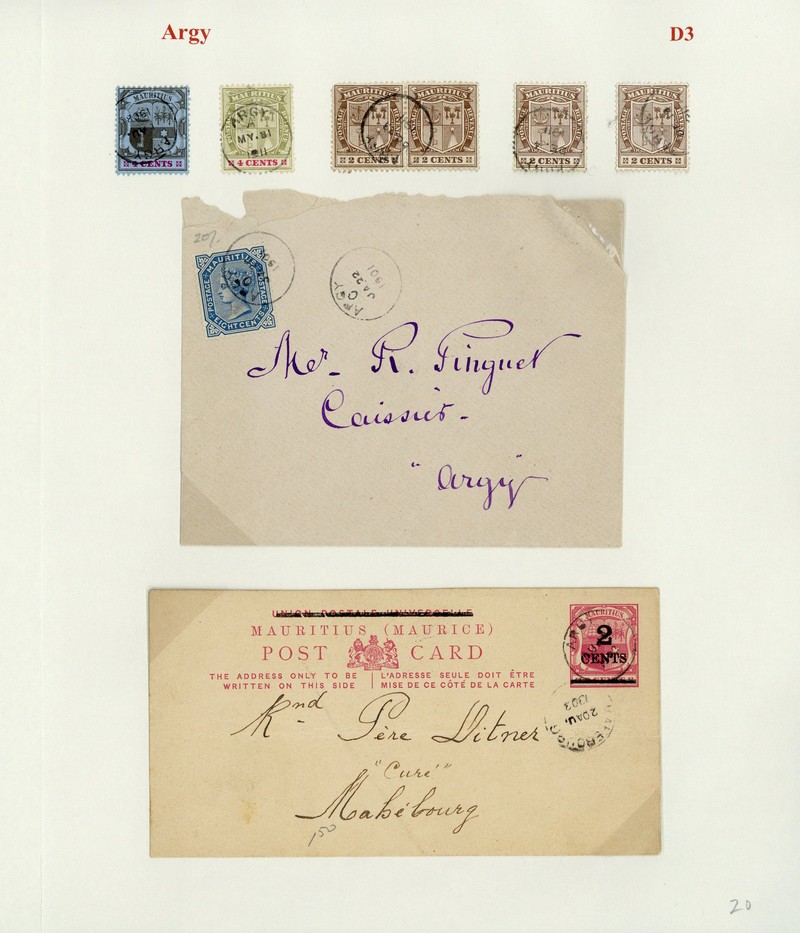 Argy
D3
MAURITIUS
4 CENTS
MAURITIUS
POSTAGE
REVENUE
4 CENTS
ARGY
MAURITIUS
POSTAGE
REVENUE
2 CENTS
MAURITIUS
POSTAGE
REVENUE
2 CENTS
2 CENTS
MAURITIUS
2 CENTS
20/.
MAURITIUS
POSTAGE
POSTAGE
EIGHT CENTS
ARGY
C
JA 22
1901
Mer R. Pinguet
Caissier
"Argy"
UNION POSTALE UNIVERSELLE
MAURITIUS (MAURICE)
POST CARD
THE ADDRESS ONLY TO BE
WRITTEN ON THIS SIDE
L'ADRESSE SEULE DOIT ÊTRE
MISE DE CE CÔTÉ DE LA CARTE
MAURITIUS
2
CENTS
ARGY
20 AU.
1903
Rnd Père Ditner
"Curé"
Mahébourg
150
20